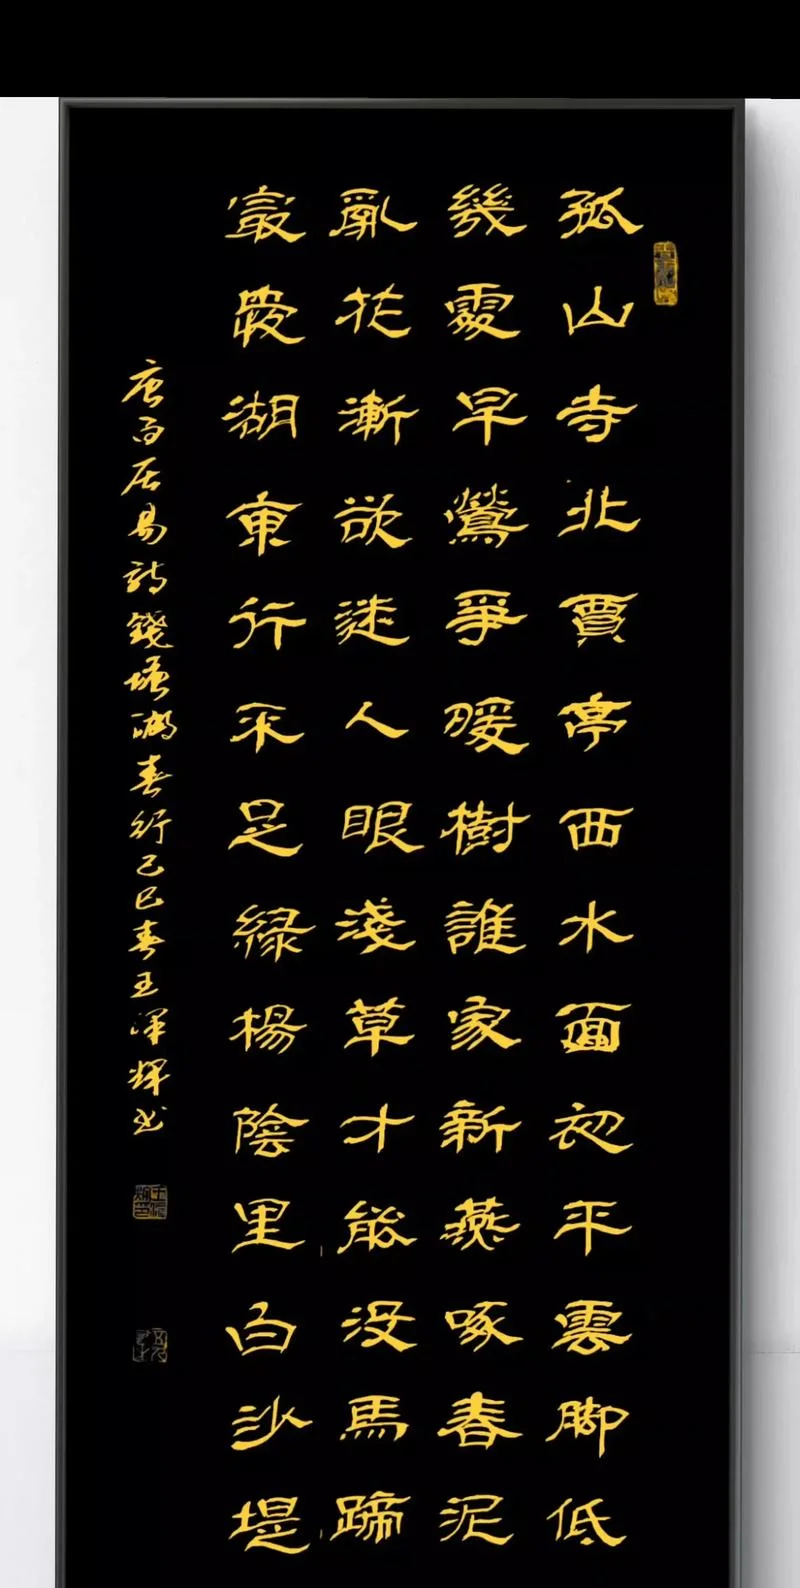 孤山寺北賈亭西水面初平雲脚低
幾處早鶯爭暖樹誰家新燕啄春泥
亂花漸欲迷人眼淺草才能没馬蹄
最愛湖東行不足緑楊陰里白沙堤
唐白居易詩錢塘湖春行己巳春王澤輝书